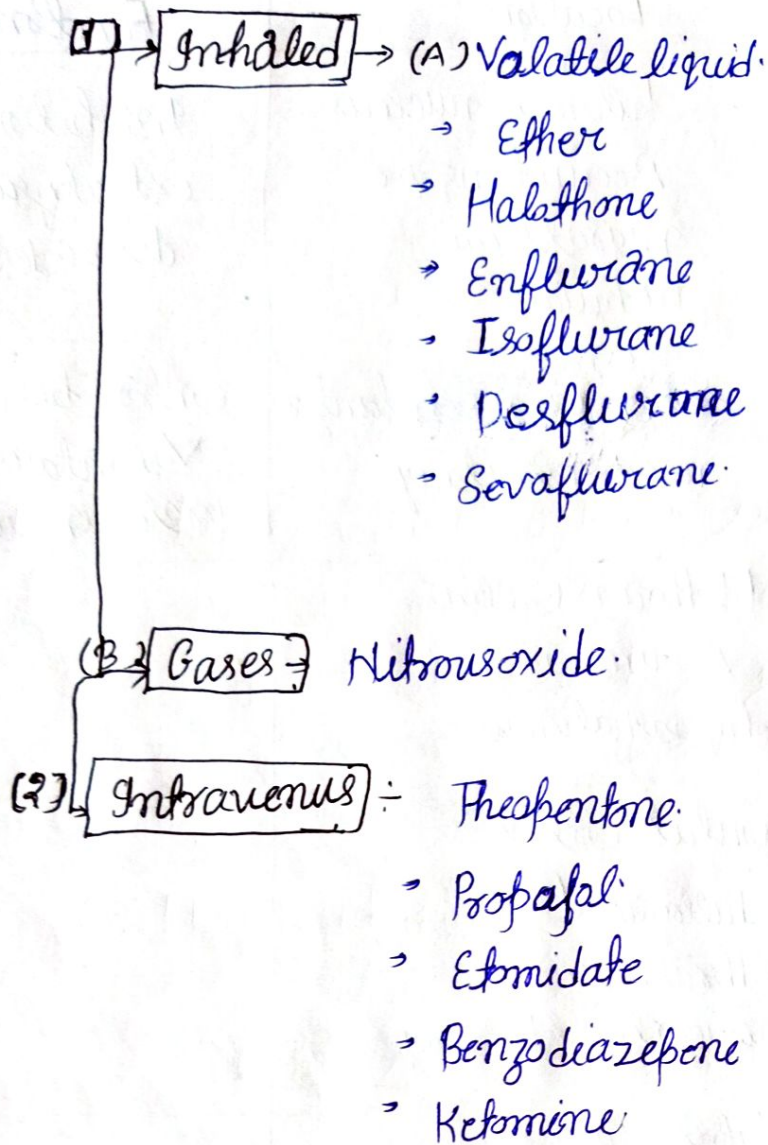 [1] → Inhaled → (A) Valatile liquid.
→ Ether
→ Halothone
→ Enflurane
→ Isoflurane
→ Desflurane
→ Sevaflurane.
(B) Gases → Nitrousoxide.
(2) Intravenus ÷ Theopentone.
→ Propafal.
→ Etomidate
→ Benzodiazepene
→ Ketomine